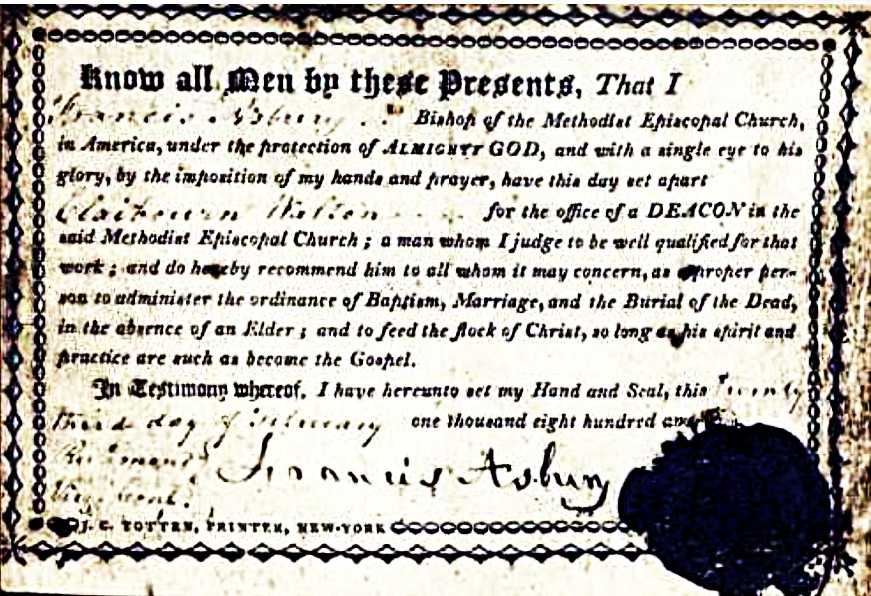 Know all Men by these Presents, That I
Francis Asbury Bishop of the Methodist Episcopal Church,
in America, under the protection of ALMIGHTY GOD, and with a single eye to his
glory, by the imposition of my hands and prayer, have this day set apart
for the office of a DEACON in the
said Methodist Episcopal Church; a man whom I judge to be well qualified for that
work; and do hereby recommend him to all whom it may concern, as a proper per-
son to administer the ordinance of Baptism, Marriage, and the Burial of the Dead,
in the absence of an Elder; and to feed the flock of Christ, so long as his spirit and
practice are such as become the Gospel.
In Testimony whereof, I have hereunto set my Hand and Seal, this Twenty
third day of February one thousand eight hundred and
Richmond
Francis Asbury
J. C. TOTTEN, PRINTER, NEW-YORK